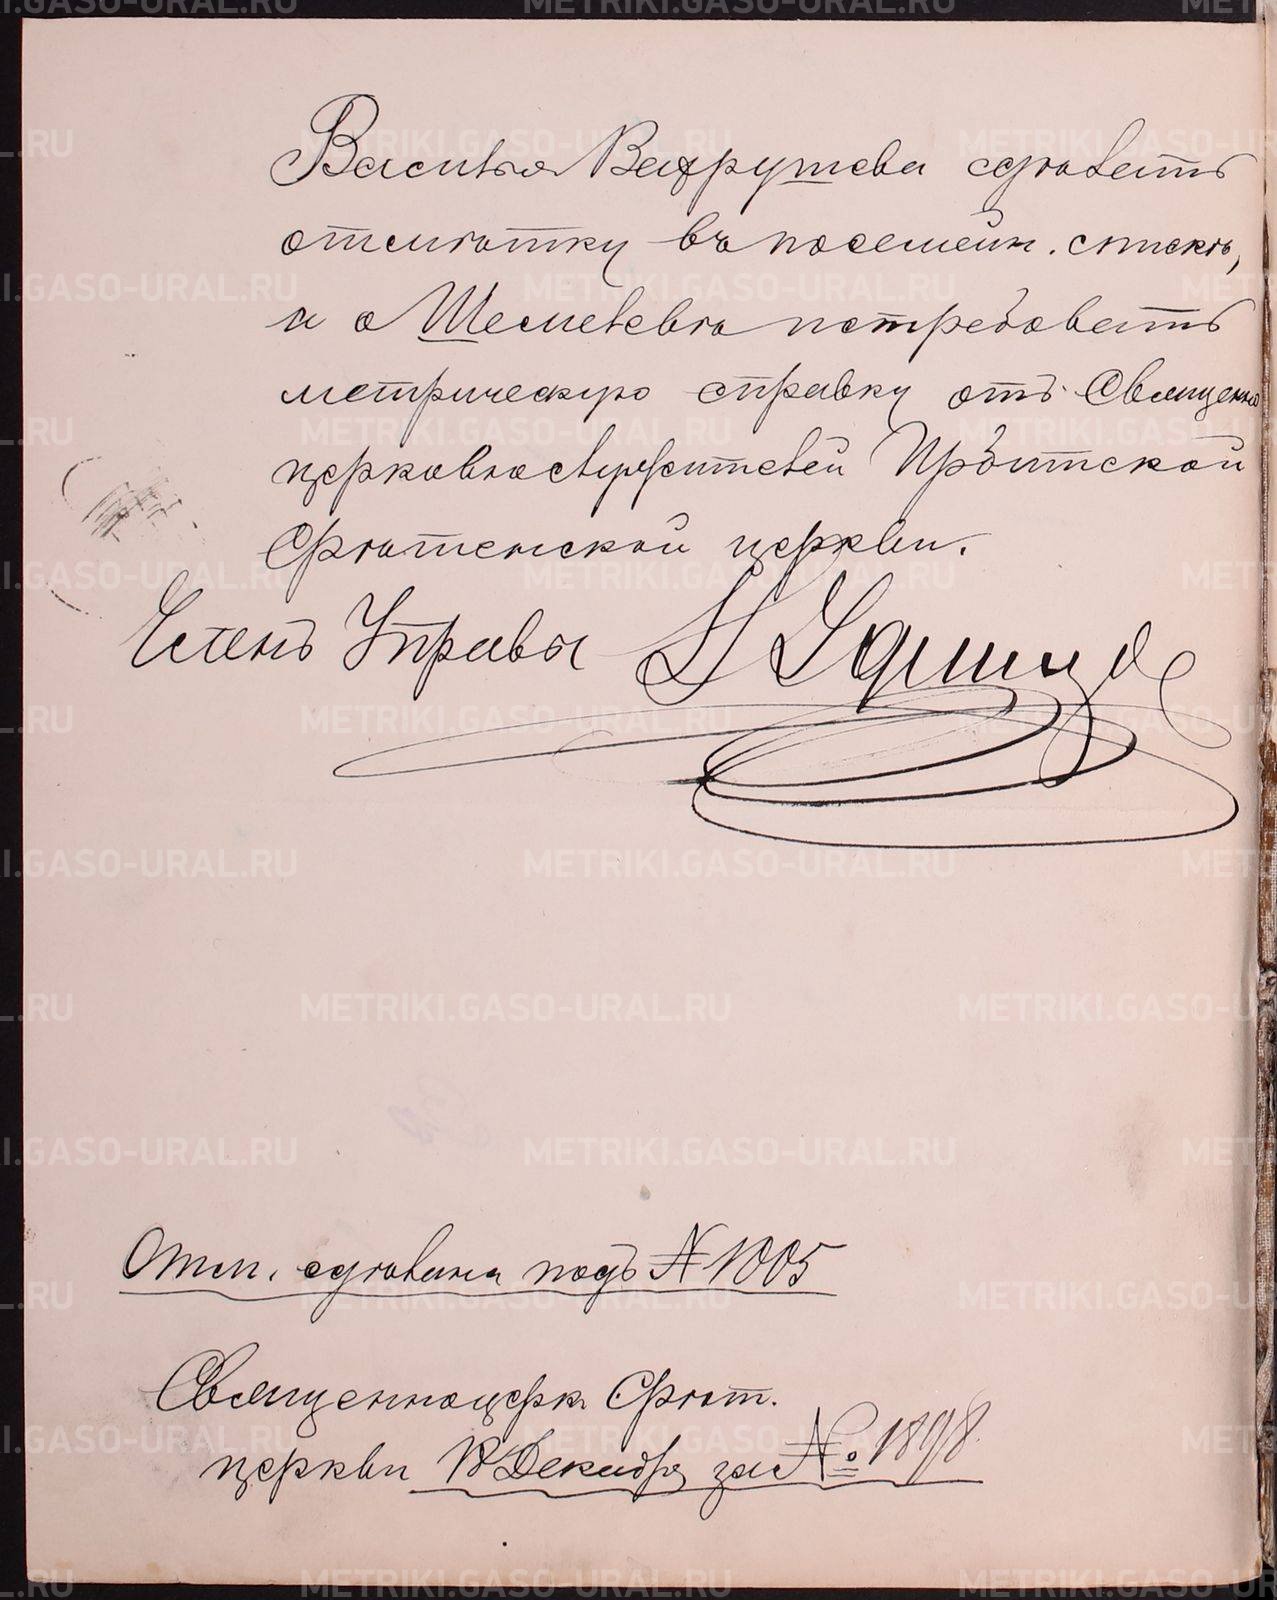 Василья Вахрушева сдѣлать
отмѣтку въ посемейн. спискѣ,
а о Шемелевѣ потребовать
метрическую справку отъ Священно
церковнослужителей Ирбитской
Срѣтенской церкви.
Членъ Управы
Отм. сдѣлана подъ № 1005
Священноцерк. Срѣт.
церкви 18 Декабря за № 1898